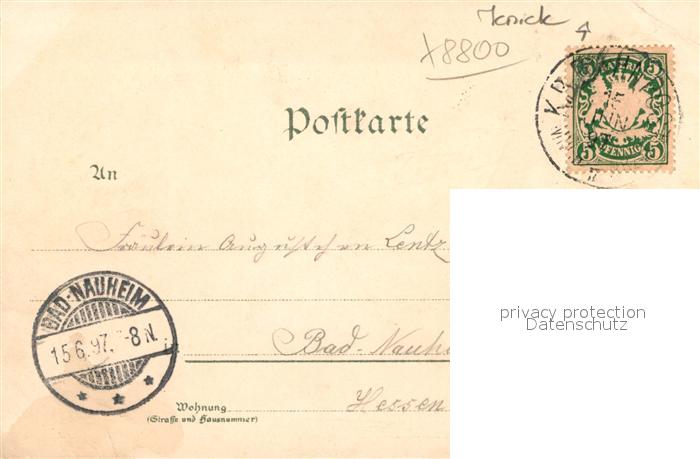 Knick
x8800
BAYERN
5 5
PFENNIG
5 5
Postkarte
An
Fräulein Augustchen Lentz
privacy protection
Datenschutz
BAD-NAUHEIM
15.6.97. -8N.
Bad-Nauh
Wohnung
Hessen
(Straße und Hausnummer)